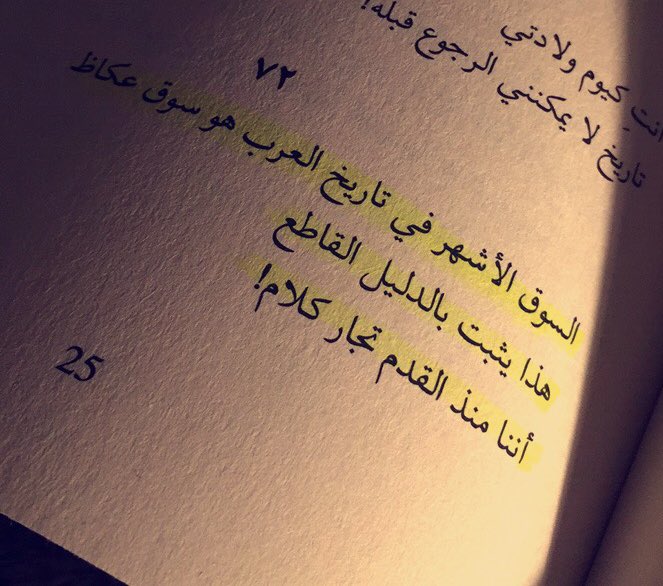 أنتِ كيوم ولادتي
تاريخ لا يمكنني الرجوع قبله!
٧٢
السوق الأشهر في تاريخ العرب هو سوق عكاظ
هذا يثبت بالدليل القاطع
أننا منذ القدم تجار كلام!
25